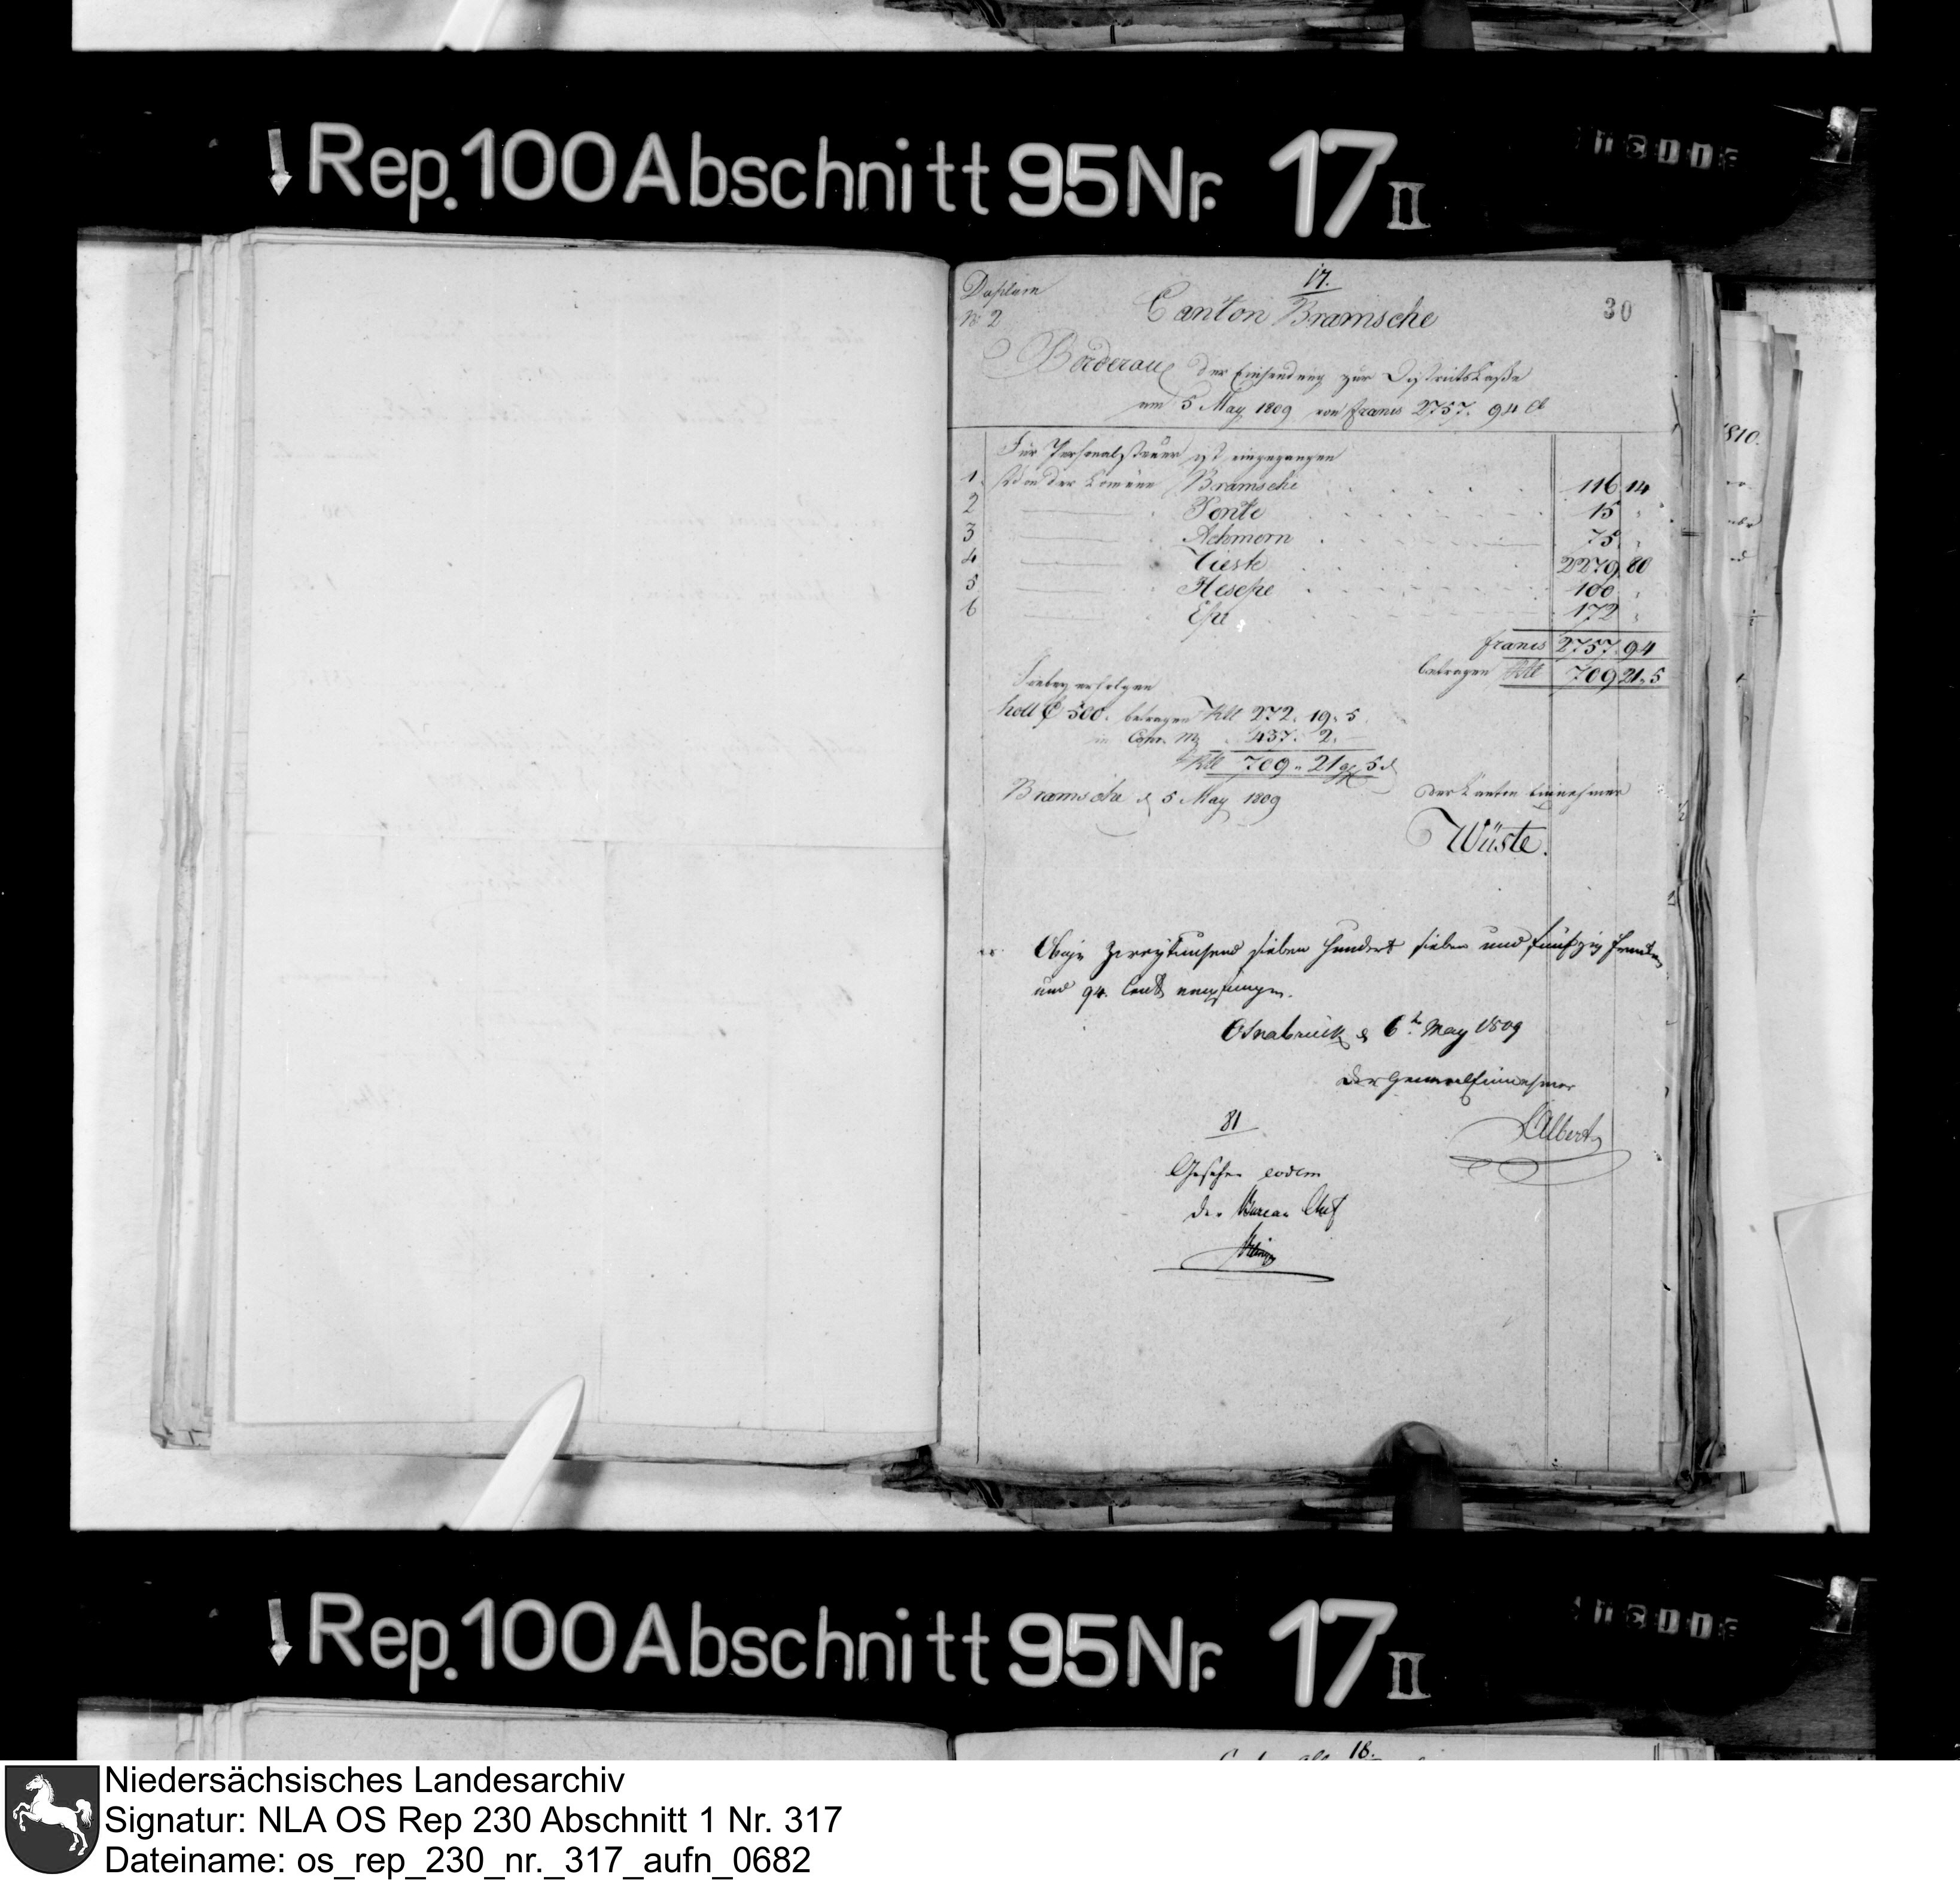 Rep. 100 Abschnitt 95 Nr. 17 II
17.
30
No 2
Canton Bramsche
Borderau der Einsendung zur Districts Casse
am 5 May 1809 von Francs 2757. 94 C
Für Personalsteuer ist eingegangen
1. in der Comüne Bramsche 116 14
2 Pente 15 "
3 Achmern 75 "
4 Vieste 2279 80
5 Hesepe 100 "
6 Epe 172 "
francs 2757. 94
betragen Rtl 709 21. 5
Hiebey erfolgen
holl 500. betragen Rtl 272. 19. 5.
in Conv. Mz 437. 2. —
Rtl 709 " 21 gr 5 d
Bramsche d 5 May 1809
Der Canton Einnehmer
Wüste.
Obige zweytausend sieben hundert sieben und fünfzig Franken
und 94. Cent empfangen.
Osnabrück d 6t May 1809
Der General Einnehmer
Albert
81
Gesehen eodem
der Bureau Chef
1810.
Rep. 100 Abschnitt 95 Nr. 17 II
18.
Niedersächsisches Landesarchiv
Signatur: NLA OS Rep 230 Abschnitt 1 Nr. 317
Dateiname: os_rep_230_nr._317_aufn_0682